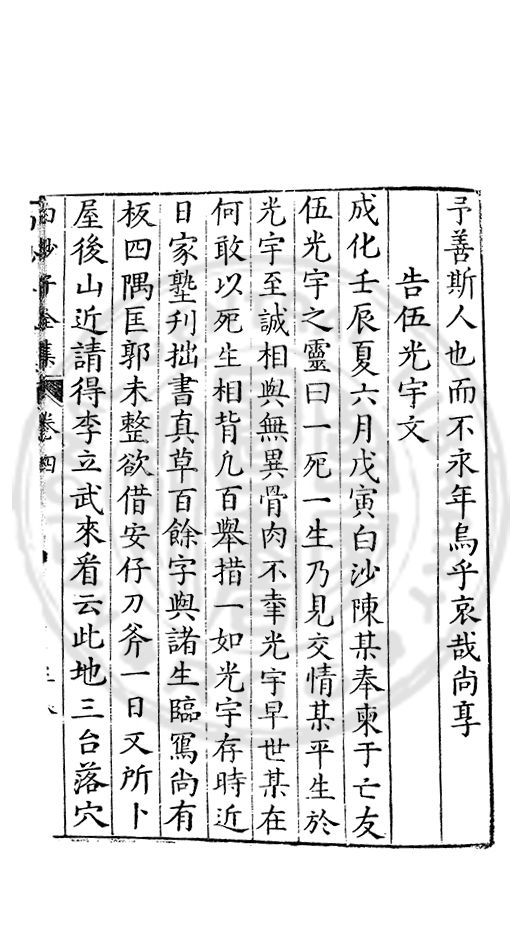 予善斯人也而不永年烏乎哀哉尚享
告伍光宇文
成化壬辰夏六月戊寅白沙陳某奉柬于亡友
伍光宇之靈曰一死一生乃見交情某平生於
光宇至誠相與無異骨肉不幸光宇早世某在
何敢以死生相背凢百舉措一如光宇存時近
日家塾刋拙書真草百餘字與諸生臨寫尚有
板四隅匡郭未整欲借安仔刀斧一日又所卜
屋後山近請得李立武來看云此地三台落穴
白沙子全集 卷四